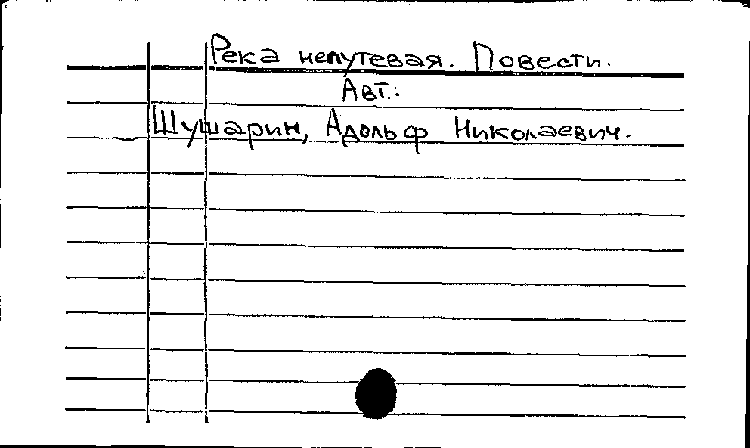 Река непутевая. Повести.
Авт.:
Шушарин, Адольф Николаевич.